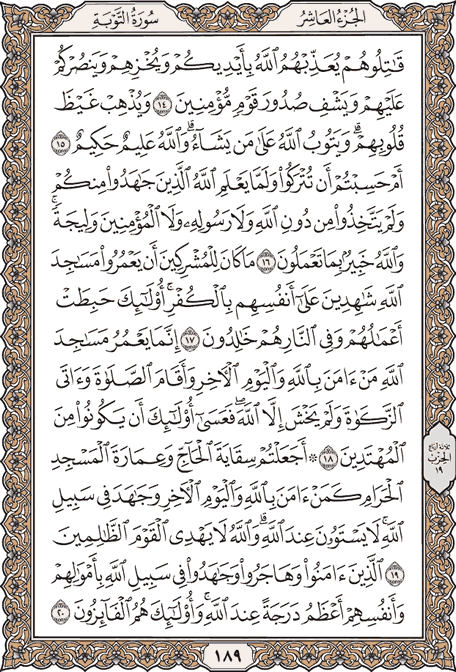 الجزء العاشر
سورة التوبة
قَٰتِلُوهُمْ يُعَذِّبْهُمُ ٱللَّهُ بِأَيْدِيكُمْ وَيُخْزِهِمْ وَيَنصُرْكُمْ
عَلَيْهِمْ وَيَشْفِ صُدُورَ قَوْمٍ مُّؤْمِنِينَ ١٤ وَيُذْهِبْ غَيْظَ
قُلُوبِهِمْ ۗ وَيَتُوبُ ٱللَّهُ عَلَىٰ مَن يَشَآءُ ۗ وَٱللَّهُ عَلِيمٌ حَكِيمٌ ١٥
أَمْ حَسِبْتُمْ أَن تُتْرَكُوا۟ وَلَمَّا يَعْلَمِ ٱللَّهُ ٱلَّذِينَ جَٰهَدُوا۟ مِنكُمْ
وَلَمْ يَتَّخِذُوا۟ مِن دُونِ ٱللَّهِ وَلَا رَسُولِهِۦ وَلَا ٱلْمُؤْمِنِينَ وَلِيجَةً ۚ
وَٱللَّهُ خَبِيرٌۢ بِمَا تَعْمَلُونَ ١٦ مَا كَانَ لِلْمُشْرِكِينَ أَن يَعْمُرُوا۟ مَسَٰجِدَ
ٱللَّهِ شَٰهِدِينَ عَلَىٰٓ أَنفُسِهِم بِٱلْكُفْرِ ۚ أُو۟لَٰٓئِكَ حَبِطَتْ
أَعْمَٰلُهُمْ وَفِى ٱلنَّارِ هُمْ خَٰلِدُونَ ١٧ إِنَّمَا يَعْمُرُ مَسَٰجِدَ
ٱللَّهِ مَنْ ءَامَنَ بِٱللَّهِ وَٱلْيَوْمِ ٱلْءَاخِرِ وَأَقَامَ ٱلصَّلَوٰةَ وَءَاتَى
ٱلزَّكَوٰةَ وَلَمْ يَخْشَ إِلَّا ٱللَّهَ ۖ فَعَسَىٰٓ أُو۟لَٰٓئِكَ أَن يَكُونُوا۟ مِنَ
ٱلْمُهْتَدِينَ ١٨ ۞ أَجَعَلْتُمْ سِقَايَةَ ٱلْحَآجِّ وَعِمَارَةَ ٱلْمَسْجِدِ
ٱلْحَرَامِ كَمَنْ ءَامَنَ بِٱللَّهِ وَٱلْيَوْمِ ٱلْءَاخِرِ وَجَٰهَدَ فِى سَبِيلِ
ٱللَّهِ ۚ لَا يَسْتَوُۥنَ عِندَ ٱللَّهِ ۗ وَٱللَّهُ لَا يَهْدِى ٱلْقَوْمَ ٱلظَّٰلِمِينَ
١٩ ٱلَّذِينَ ءَامَنُوا۟ وَهَاجَرُوا۟ وَجَٰهَدُوا۟ فِى سَبِيلِ ٱللَّهِ بِأَمْوَٰلِهِمْ
وَأَنفُسِهِمْ أَعْظَمُ دَرَجَةً عِندَ ٱللَّهِ ۚ وَأُو۟لَٰٓئِكَ هُمُ ٱلْفَآئِزُونَ ٢٠
الحزب
١٩
١٨٩